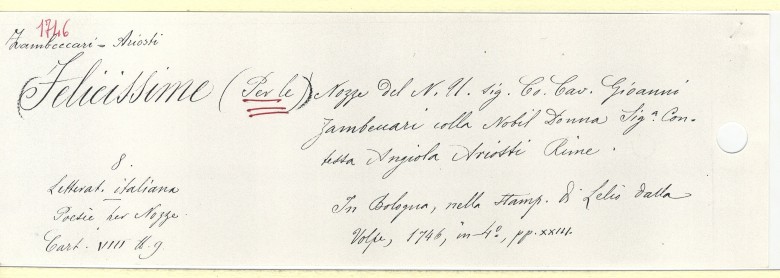 1746
Zambeccari - Ariosti
(Felicissime (Per le)) Nozze del N. U. sig. Co. Cav. Gioanni
Zambeccari colla Nobil Donna Sigª. Con-
tessa Angiola Ariosti Rime.
8.
Letterat. italiana
Poesie per Nozze.
Cart. VIII n. 9
In Bologna, nella stamp. di Lelio dalla
Volpe, 1746, in-4º, pp. XXIII.